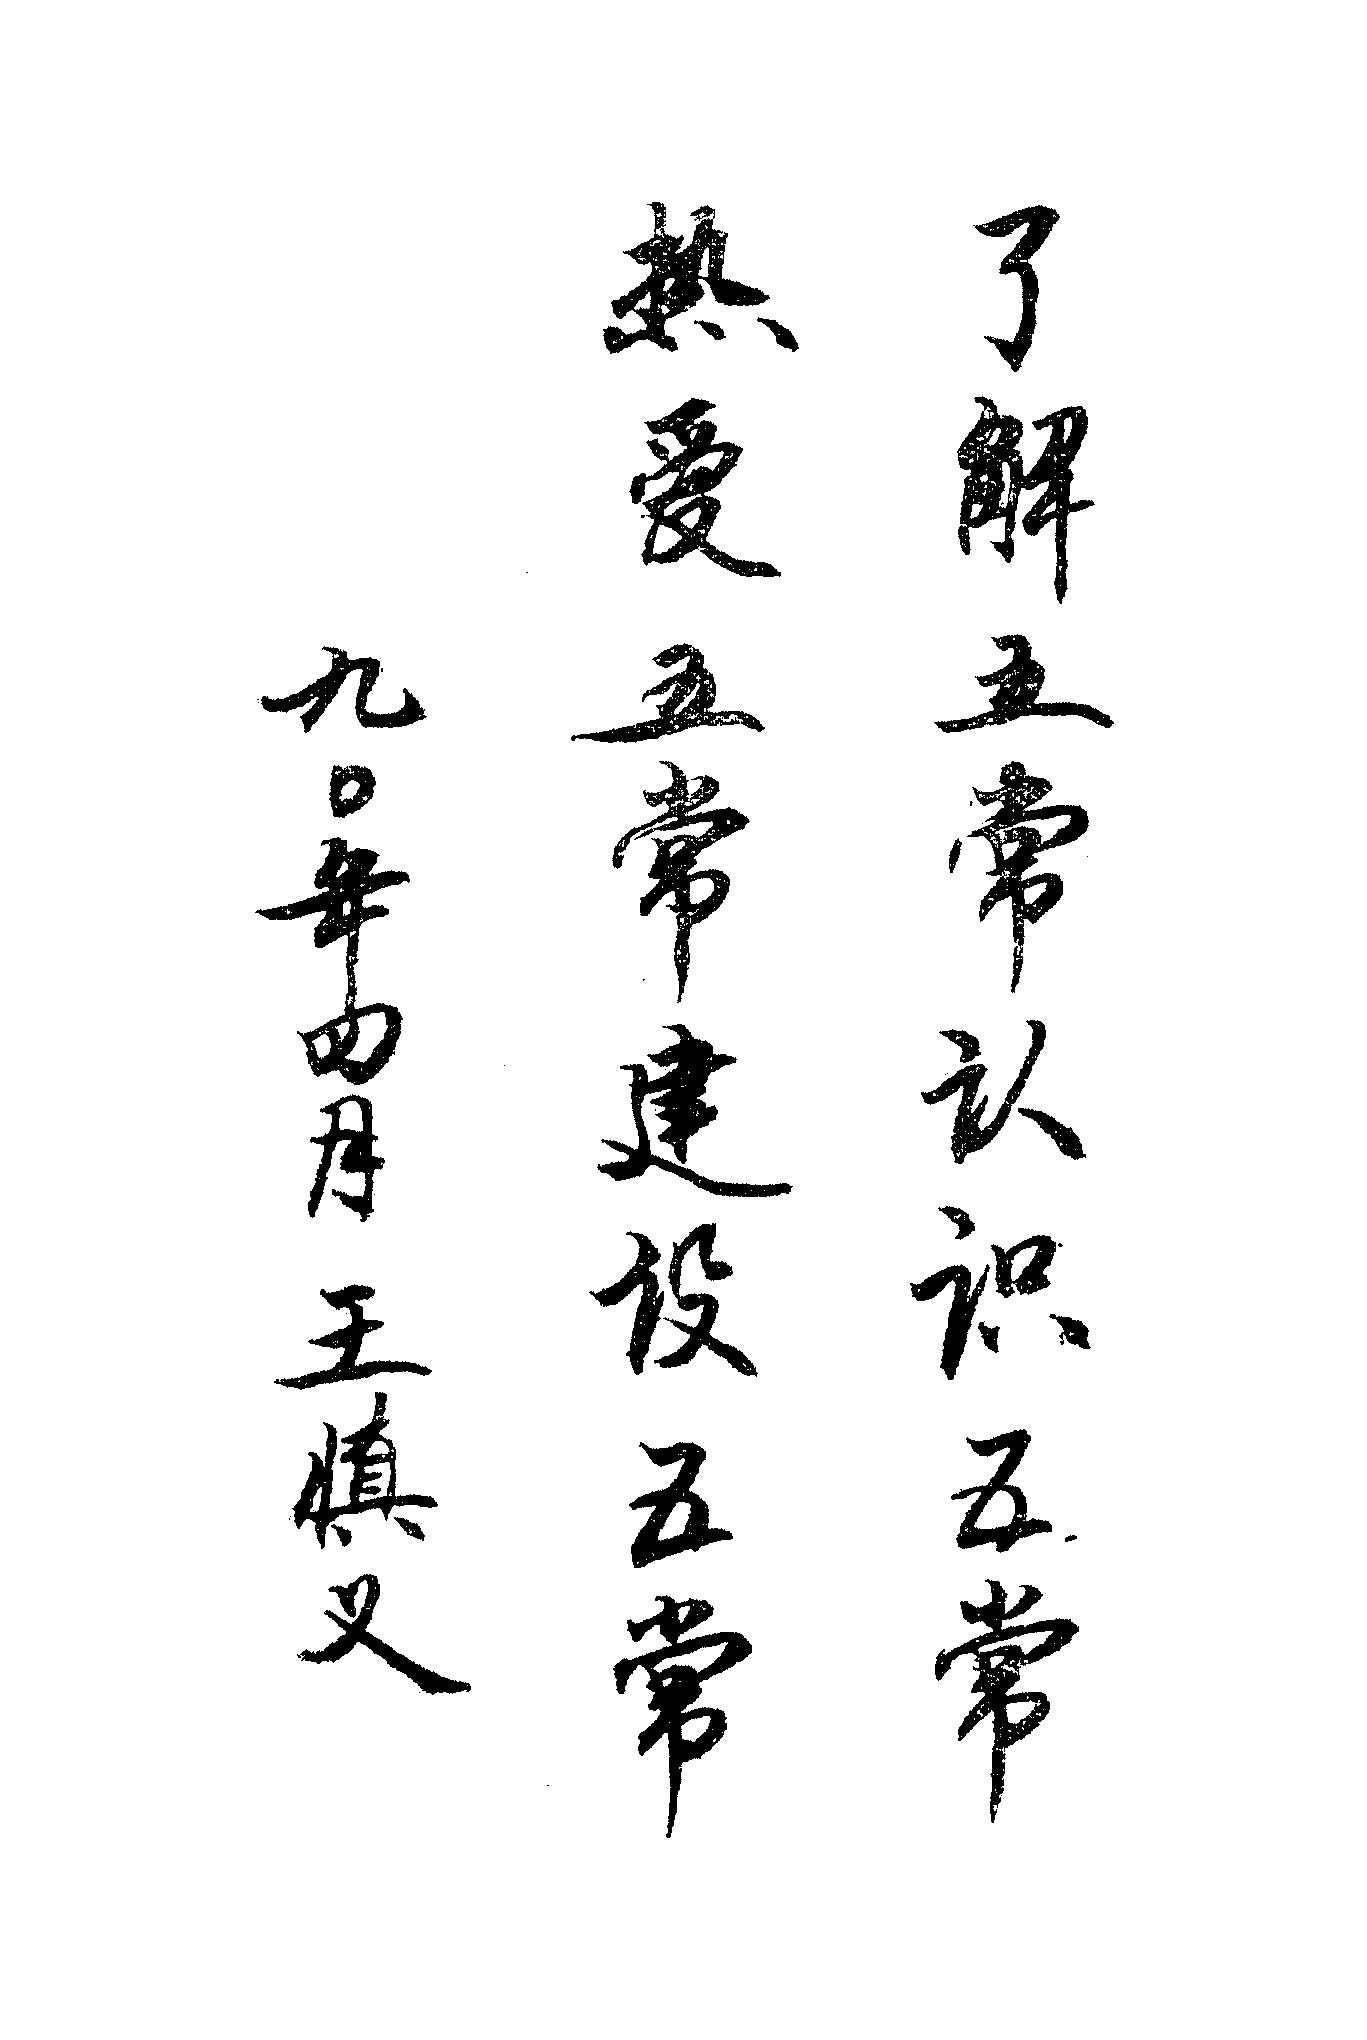 了解五常认识五常
热爱五常建设五常
九〇年四月 王慎义